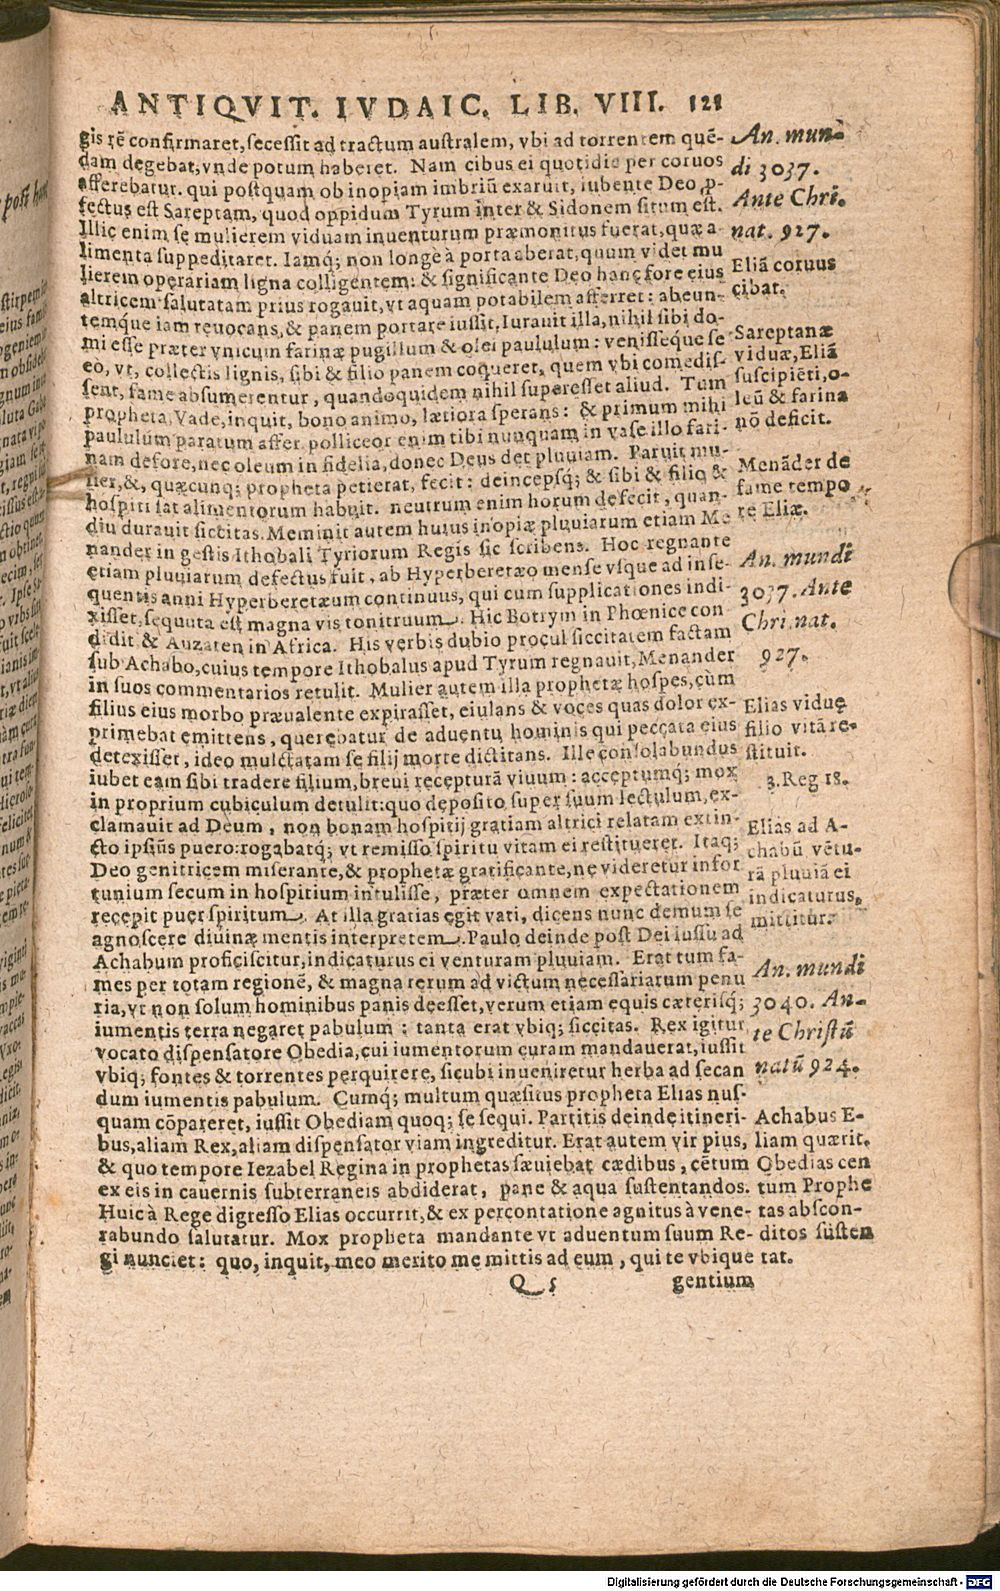 ANTIQVIT. IVDAIC. LIB. VIII. 121
gis rē confirmaret, secessit ad tractum australem, vbi ad torrentem quē-
dam degebat, vnde potum haberet. Nam cibus ei quotidie per coruos
afferebatur. qui postquam ob inopiam imbriū exaruit, iubente Deo, p-
fectus est Sareptam, quod oppidum Tyrum inter & Sidonem situm est.
Illic enim se mulierem viduam inuenturum præmonitus fuerat, quæ a-
limenta suppeditaret. Iamq; non longè à porta aberat, quum videt mu
lierem operariam ligna colligentem: & significante Deo hanc fore eius
altricem salutatam prius rogauit, vt aquam potabilem afferret: abeun-
temq́ue iam reuocans, & panem portare iussit. Iurauit illa, nihil sibi do-
mi esse præter vnicum farinæ pugillum & olei paululum: venisseque se
eo, vt, collectis lignis, sibi & filio panem coqueret, quem vbi comedis-
sent, fame absumerentur, quandoquidem nihil superesset aliud. Tum
propheta, Vade, inquit, bono animo, lætiora sperans: & primum mihi
paululum paratum affer. polliceor enim tibi nunquam in vase illo fari-
nam defore, nec oleum in fidelia, donec Deus det pluuiam. Paruit mu-
lier, &, quæcunq; propheta petierat, fecit: deincepsq́; & sibi & filio &
hospiti sat alimentorum habuit. neutrum enim horum defecit, quan-
diu durauit siccitas. Meminit autem huius inopiæ pluuiarum etiam Me
nander in gestis Ithobali Tyriorum Regis sic scribens. Hoc regnante
etiam pluuiarum defectus fuit, ab Hyperberetæo mense vsque ad inse-
quentis anni Hyperberetæum continuus, qui cum supplicationes indi-
xisset, sequuta est magna vis tonitruum. Hic Botrym in Phœnice con
didit & Auzaten in Africa. His verbis dubio procul siccitatem factam
sub Achabo, cuius tempore Ithobalus apud Tyrum regnauit, Menander
in suos commentarios retulit. Mulier autem illa prophetæ hospes, cùm
filius eius morbo præualente expirasset, eiulans & voces quas dolor ex-
primebat emittens, querebatur de aduentu hominis qui peccata eius
detexisset, ideo mulctatam se filij morte dictitans. Ille consolabundus
iubet eam sibi tradere filium, breui recepturā viuum: acceptumq́; mox
in proprium cubiculum detulit: quo deposito super suum lectulum, ex-
clamauit ad Deum, non bonam hospitij gratiam altrici relatam extin-
cto ipsius puero: rogabatq́; vt remisso spiritu vitam ei restitueret. Itaq;
Deo genitricem miserante, & prophetæ gratificante, ne videretur infor
tunium secum in hospitium intulisse, præter omnem expectationem
recepit puer spiritum. At illa gratias egit vati, dicens nunc demum se
agnoscere diuinæ mentis interpretem. Paulo deinde post Dei iussu ad
Achabum proficiscitur, indicaturus ei venturam pluuiam. Erat tum fa-
mes per totam regionē, & magna rerum ad victum necessariarum penu
ria, vt non solum hominibus panis deesset, verum etiam equis cæterisq́;
iumentis terra negaret pabulum: tanta erat vbiq; siccitas. Rex igitur
vocato dispensatore Obedia, cui iumentorum curam mandauerat, iussit
vbiq; fontes & torrentes perquirere, sicubi inueniretur herba ad secan
dum iumentis pabulum. Cumq́; multum quæsitus propheta Elias nus-
quam cōpareret, iussit Obediam quoq; se sequi. Partitis deinde itineri-
bus, aliam Rex, aliam dispensator viam ingreditur. Erat autem vir pius,
& quo tempore Iezabel Regina in prophetas sæuiebat cædibus, cētum
ex eis in cauernis subterraneis abdiderat, pane & aqua sustentandos.
Huic à Rege digresso Elias occurrit, & ex percontatione agnitus à vene-
rabundo salutatur. Mox propheta mandante vt aduentum suum Re-
gi nunciet: quo, inquit, meo merito me mittis ad eum, qui te vbique
Q 5 gentium
An. mun-
di 3037.
Ante Chri.
nat. 927.
Eliā coruus
cibat.
Sareptanæ
viduæ, Eliā
suscipiēti, o-
leū & farina
nō deficit.
Menāder de
fame tempo
re Eliæ.
An. mundi
3037. Ante
Chri. nat.
927.
Elias viduę
filio vitā re-
stituit.
3. Reg 18.
Elias ad A-
chabū vētu-
rā pluuiā ei
indicaturus,
mittitur.
An. mundi
3040. An-
te Christū
natū 924.
Achabus E-
liam quærit.
Obedias cen
tum Prophe
tas abscon-
ditos susten
tat.
Digitalisierung gefördert durch die Deutsche Forschungsgemeinschaft - DFG